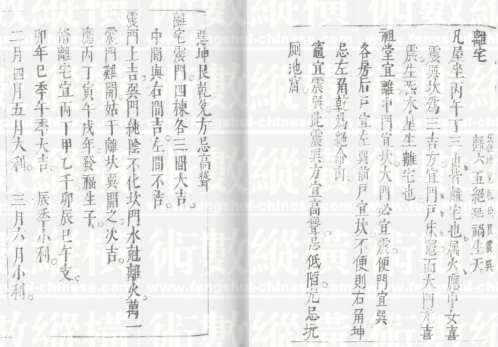 離宅
離六五絕延禍生天
凡屋坐丙午丁三山皆離宅也屬火應中女喜
震與坎為三吉方宜門戶生竈而大門尤喜
震左蓋木星生離宅也
祖堂宜離中門宜坎大門必宜震便門宜巽
各房后戶宜左與前戶宜坎不便則右角坤
忌左角乾為絕命凶
竈宜震與此震與方宜高聳忌低陷尤忌坑
厠池
忌坤艮乾兌方忌高聳
離宅震門四棟各三間大吉
中間與右間吉左間不吉
震門上吉巽門純陰不化坎門水尅離火萬一
震門難開始于離坎巽開之次吉
應丙丁寅午戌年發福生子
修離宅宜丙丁甲乙干卯辰巳午支
卯年巳季午季大吉 辰季小利
二月四月五月大利 三月六月小利